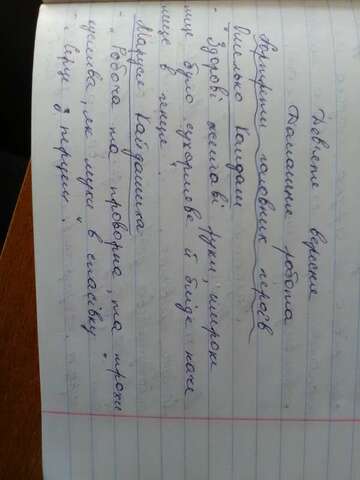 Дев'яте вересня
Домашня робота
Портрети головних героїв
Омелько Кайдаш
- Здорові жилаві руки, широке
лице було сухорляве й бліде наче
лице в ченця.
Маруся Кайдашиха
- „Робоча та проворна, та трохи
куслива, як муха в спасівку"
- „Серце з перцем".